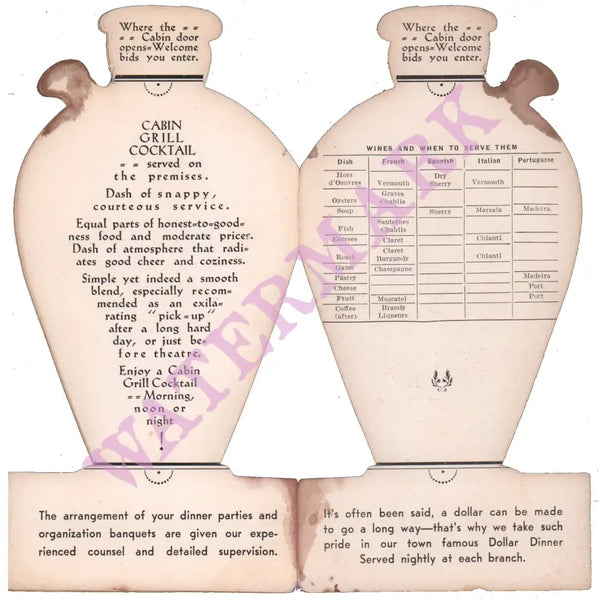 Where the = =
= = Cabin door
opens=Welcome
bids you enter.
CABIN
GRILL
COCKTAIL
= = served on
the premises.
Dash of snappy,
courteous service.
Equal parts of honest=to=good=
ness food and moderate prices.
Dash of atmosphere that radi=
ates good cheer and coziness.
Simple yet indeed a smooth
blend, especially recom=
mended as an exila=
rating "pick=up"
after a long hard
day, or just be=
fore theatre.
Enjoy a Cabin
Grill Cocktail
= = Morning,
noon or
night
!
The arrangement of your dinner parties and
organization banquets are given our expe-
rienced counsel and detailed supervision.
Where the = =
= = Cabin door
opens=Welcome
bids you enter.
WINES AND WHEN TO SERVE THEM
Dish French Spanish Italian Portuguese
Hors d'Oeuvres Vermouth Dry Sherry Vermouth
Oysters Graves Chablis
Soup Sherry Marsala Madeira
Fish Sauternes Chablis
Entrees Claret Chianti
Roast Claret Burgundy Chianti
Game Champagne
Pastry Madeira
Cheese Port
Fruit Muscatel Port
Coffee (after) Brandy Liqueurs
It's often been said, a dollar can be made
to go a long way—that's why we take such
pride in our town famous Dollar Dinner
Served nightly at each branch.
WATERMARK